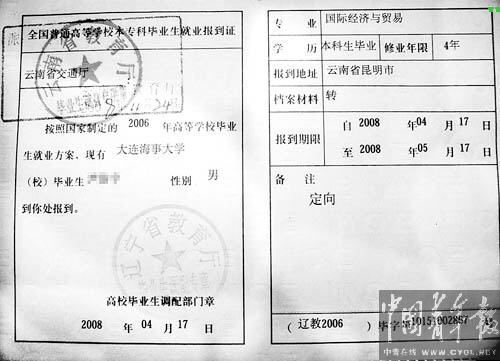 全国普通高等学校本专科毕业生就业报到证
云南省教育厅
云南省交通厅
按照国家制定的 2006 年高等学校毕业
生就业方案，现有 大连海事大学
（校）毕业生 性别 男
到你处报到。
辽宁省教育厅
高校毕业生调配部门章
2008 年 04 月 17 日
专业 国际经济与贸易
学历 本科生毕业 修业年限 4年
报到地址 云南省昆明市
档案材料 转
报到期限 自 2008 年 04 月 17 日
至 2008 年 05 月 17 日
备注
定向
（辽教2006）毕字第10151002857
中国青年报
中青在线 WWW.CYOL.NET